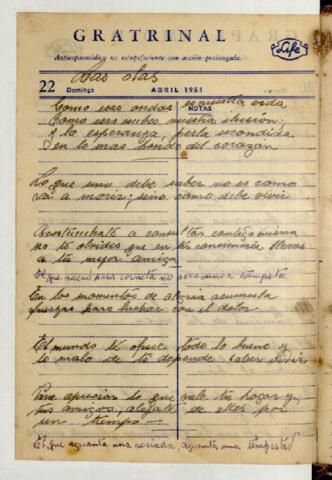 GRATRINAL
Antiespasmódico no estupefaciente con acción prolongada.
Life
Las olas
22 Domingo ABRIL 1951
NOTAS
Como esas ondas es nuestra vida
Como esas nubes nuestra ilusion
y la esperanza, perla escondida
en lo mas hondo del corazon
Lo que uno debe saber no es como
va a morir; sino como debe vivir
Acostumbrate a consultar contigo misma
no te olvides que en tu conciencia llevas
a tu mejor amiga
El que nació para corneta no
En los momentos de alegria acumula
fuerzas para luchar con el dolor
El mundo te ofrece todo lo bueno y
lo malo de ti depende saber vivir
Para apreciar lo que vale tu hogar y
tus amigos, alejate de ellos por
un tiempo
El que aguanta una aguanta una tempestad